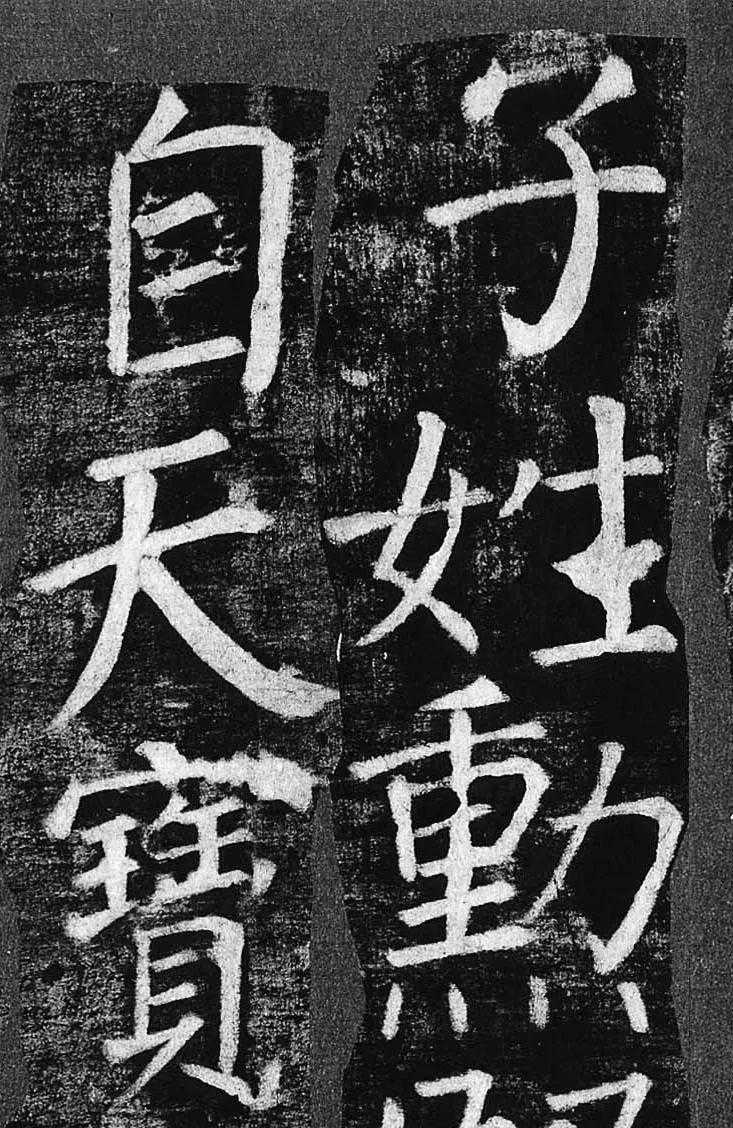 子姓勲
自天寶